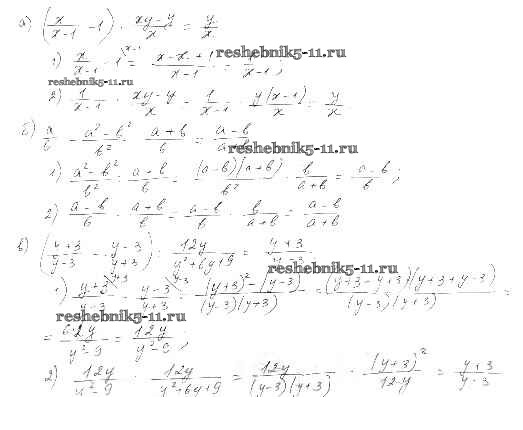 а) (x/(x-1) - 1) · (xy-y)/x = y/x
1) x/(x-1) - 1 = (x-x+1)/(x-1) = 1/(x-1);
reshebnik5-11.ru
reshebnik5-11.ru
2) 1/(x-1) · (xy-y)/x = 1/(x-1) · y(x-1)/x = y/x.
б) a/b (a²-b²)/b² (a+b)/b = (a-b)/
reshebnik5-11.ru
1) (a²-b²)/b² : (a+b)/b = (a-b)(a+b)/b² · b/(a+b) = (a-b)/b;
2) (a-b)/b : (a+b)/b = (a-b)/b · b/(a+b) = (a-b)/(a+b)
в) ((y+3)/(y-3) - (y-3)/(y+3)) : 12y/(y²+6y+9) = (y+3)/(y-3)
reshebnik5-11.ru
1) (y+3)/(y-3) - (y-3)/(y+3) = ((y+3)²-(y-3)²)/((y-3)(y+3)) = (y+3-y+3)(y+3+y-3)/((y-3)(y+3)) =
reshebnik5-11.ru
= 6·2y/(y²-9) = 12y/(y²-9);
2) 12y/(y²-9) : 12y/(y²+6y+9) = 12y/((y-3)(y+3)) · (y+3)²/12y = (y+3)/(y-3)